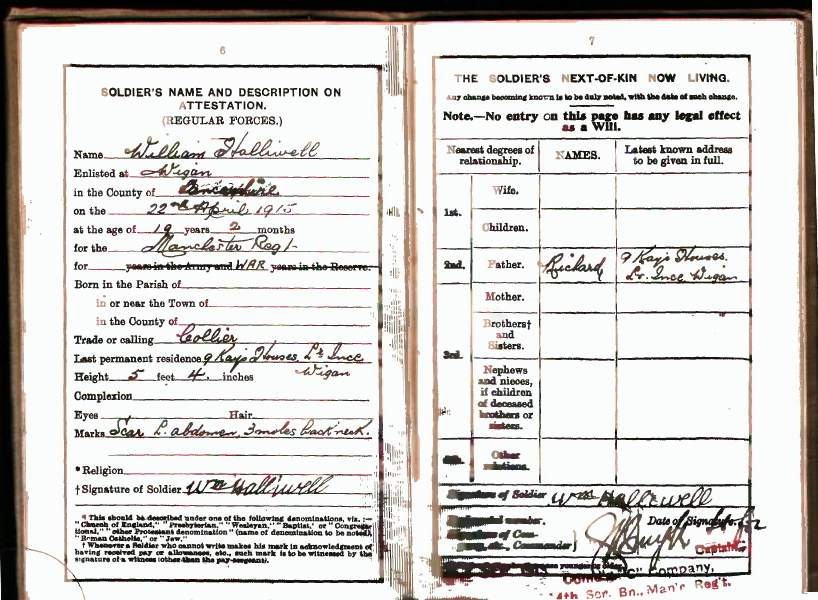 6
SOLDIER'S NAME AND DESCRIPTION ON
ATTESTATION.
(REGULAR FORCES.)
Name William Halliwell
Enlisted at Wigan
in the County of Lancashire
on the 22nd April 1915
at the age of 19 years 2 months
for the Manchester Regt
for years in the Army and WAR years in the Reserve.
Born in the Parish of
in or near the Town of
in the County of
Trade or calling Collier
Last permanent residence 9 Kay's Houses, Lr Ince
Wigan
Height 5 feet 4. inches
Complexion
Eyes Hair
Marks Scar L. abdomen, 3 moles back neck.
* Religion
† Signature of Soldier Wm Halliwell
* This should be described under one of the following denominations, viz. :—
"Church of England," "Presbyterian," "Wesleyan," "Baptist," or "Congrega-
tional," "other Protestant denomination" (name of denomination to be noted),
"Roman Catholic," or "Jew."
† Whenever a Soldier who cannot write makes his mark in acknowledgment of
having received pay or allowances, etc., such mark is to be witnessed by the
signature of a witness (other than the pay-sergeant).
7
THE SOLDIER'S NEXT-OF-KIN NOW LIVING.
Any change becoming known is to be duly noted, with the date of such change.
Note.—No entry on this page has any legal effect
as a Will.
Nearest degrees of
relationship.
NAMES.
Latest known address
to be given in full.
1st.
Wife.
Children.
2nd.
Father.
Richard
9 Kay's Houses.
Lr. Ince Wigan
Mother.
3rd.
Brothers†
and
Sisters.
Nephews
and nieces,
if children
of deceased
brothers or
sisters.
4th.
Other
relations.
Signature of Soldier Wm Halliwell
Regimental number. Date of Signature
Signature of Com-
pany, etc., Commander
Captain.
"C" Company,
4th Ser. Bn., Man'r Reg't.